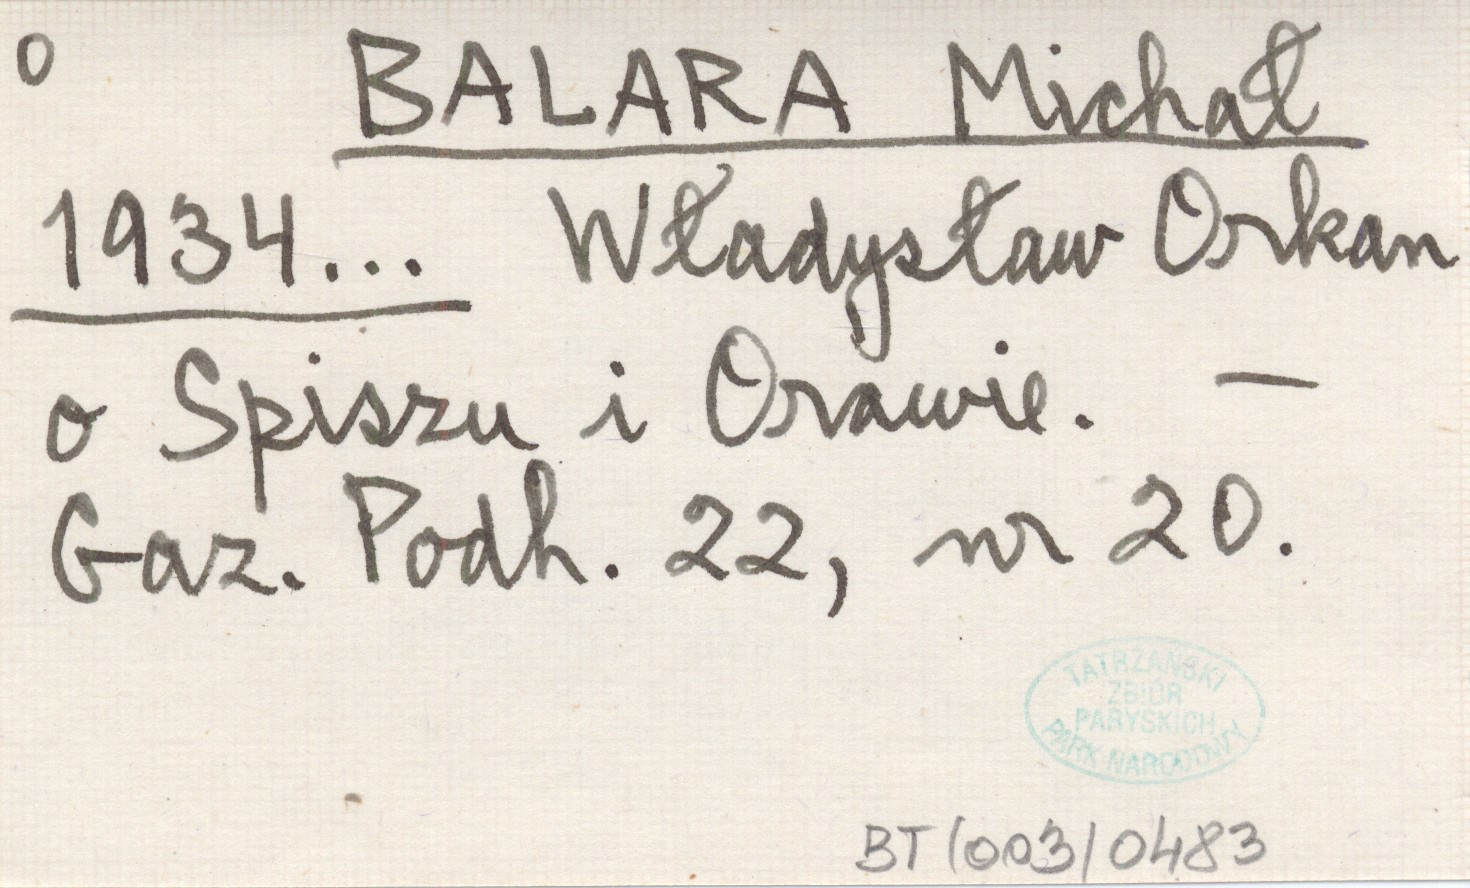 o BALARA Michał
1934... Władysław Orkan
o Spiszu i Orawie. —
Gaz. Podh. 22, nr 20.
TATRZAŃSKI
ZBIÓR
PARYSKICH
PARK NARODOWY
BT/003/0483